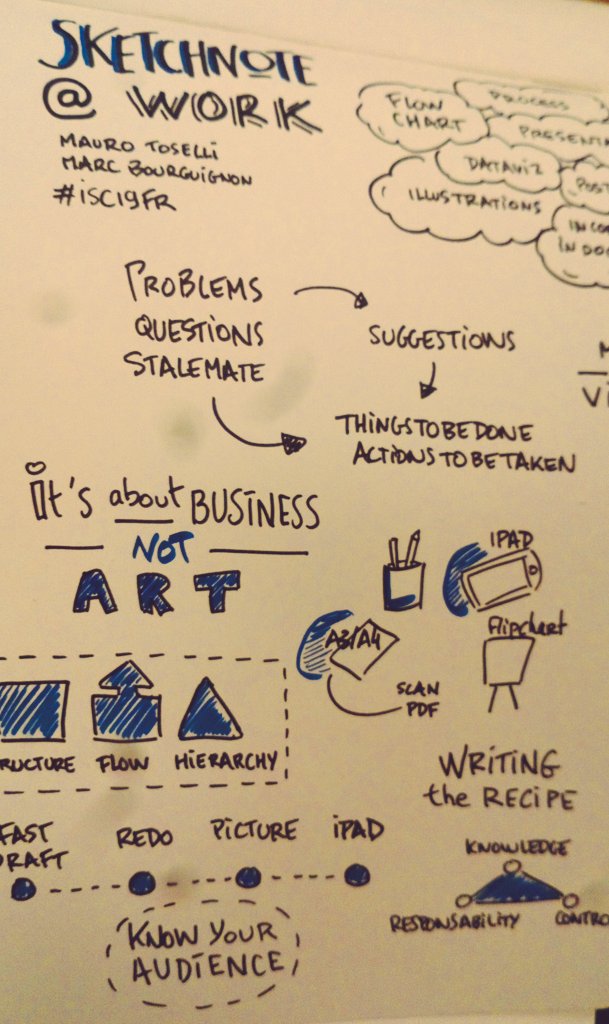 SKETCHNOTE
@ WORK
MAURO TOSELLI
MARC BOURGUIGNON
#ISC19FR
FLOW
CHART
PROCESS
PRESENTA
DATAVIZ
POST
ILLUSTRATIONS
IN DO
PROBLEMS
QUESTIONS
STALEMATE
SUGGESTIONS
THINGS TO BE DONE
ACTIONS TO BE TAKEN
M
Vi
it's about BUSINESS
NOT
ART
IPAD
A3/A4
Flipchart
SCAN
PDF
RUCTURE FLOW HIERARCHY
WRITING
the RECIPE
FAST
DRAFT
REDO
PICTURE
iPAD
KNOWLEDGE
RESPONSABILITY
CONTRO
KNOW YOUR
AUDIENCE